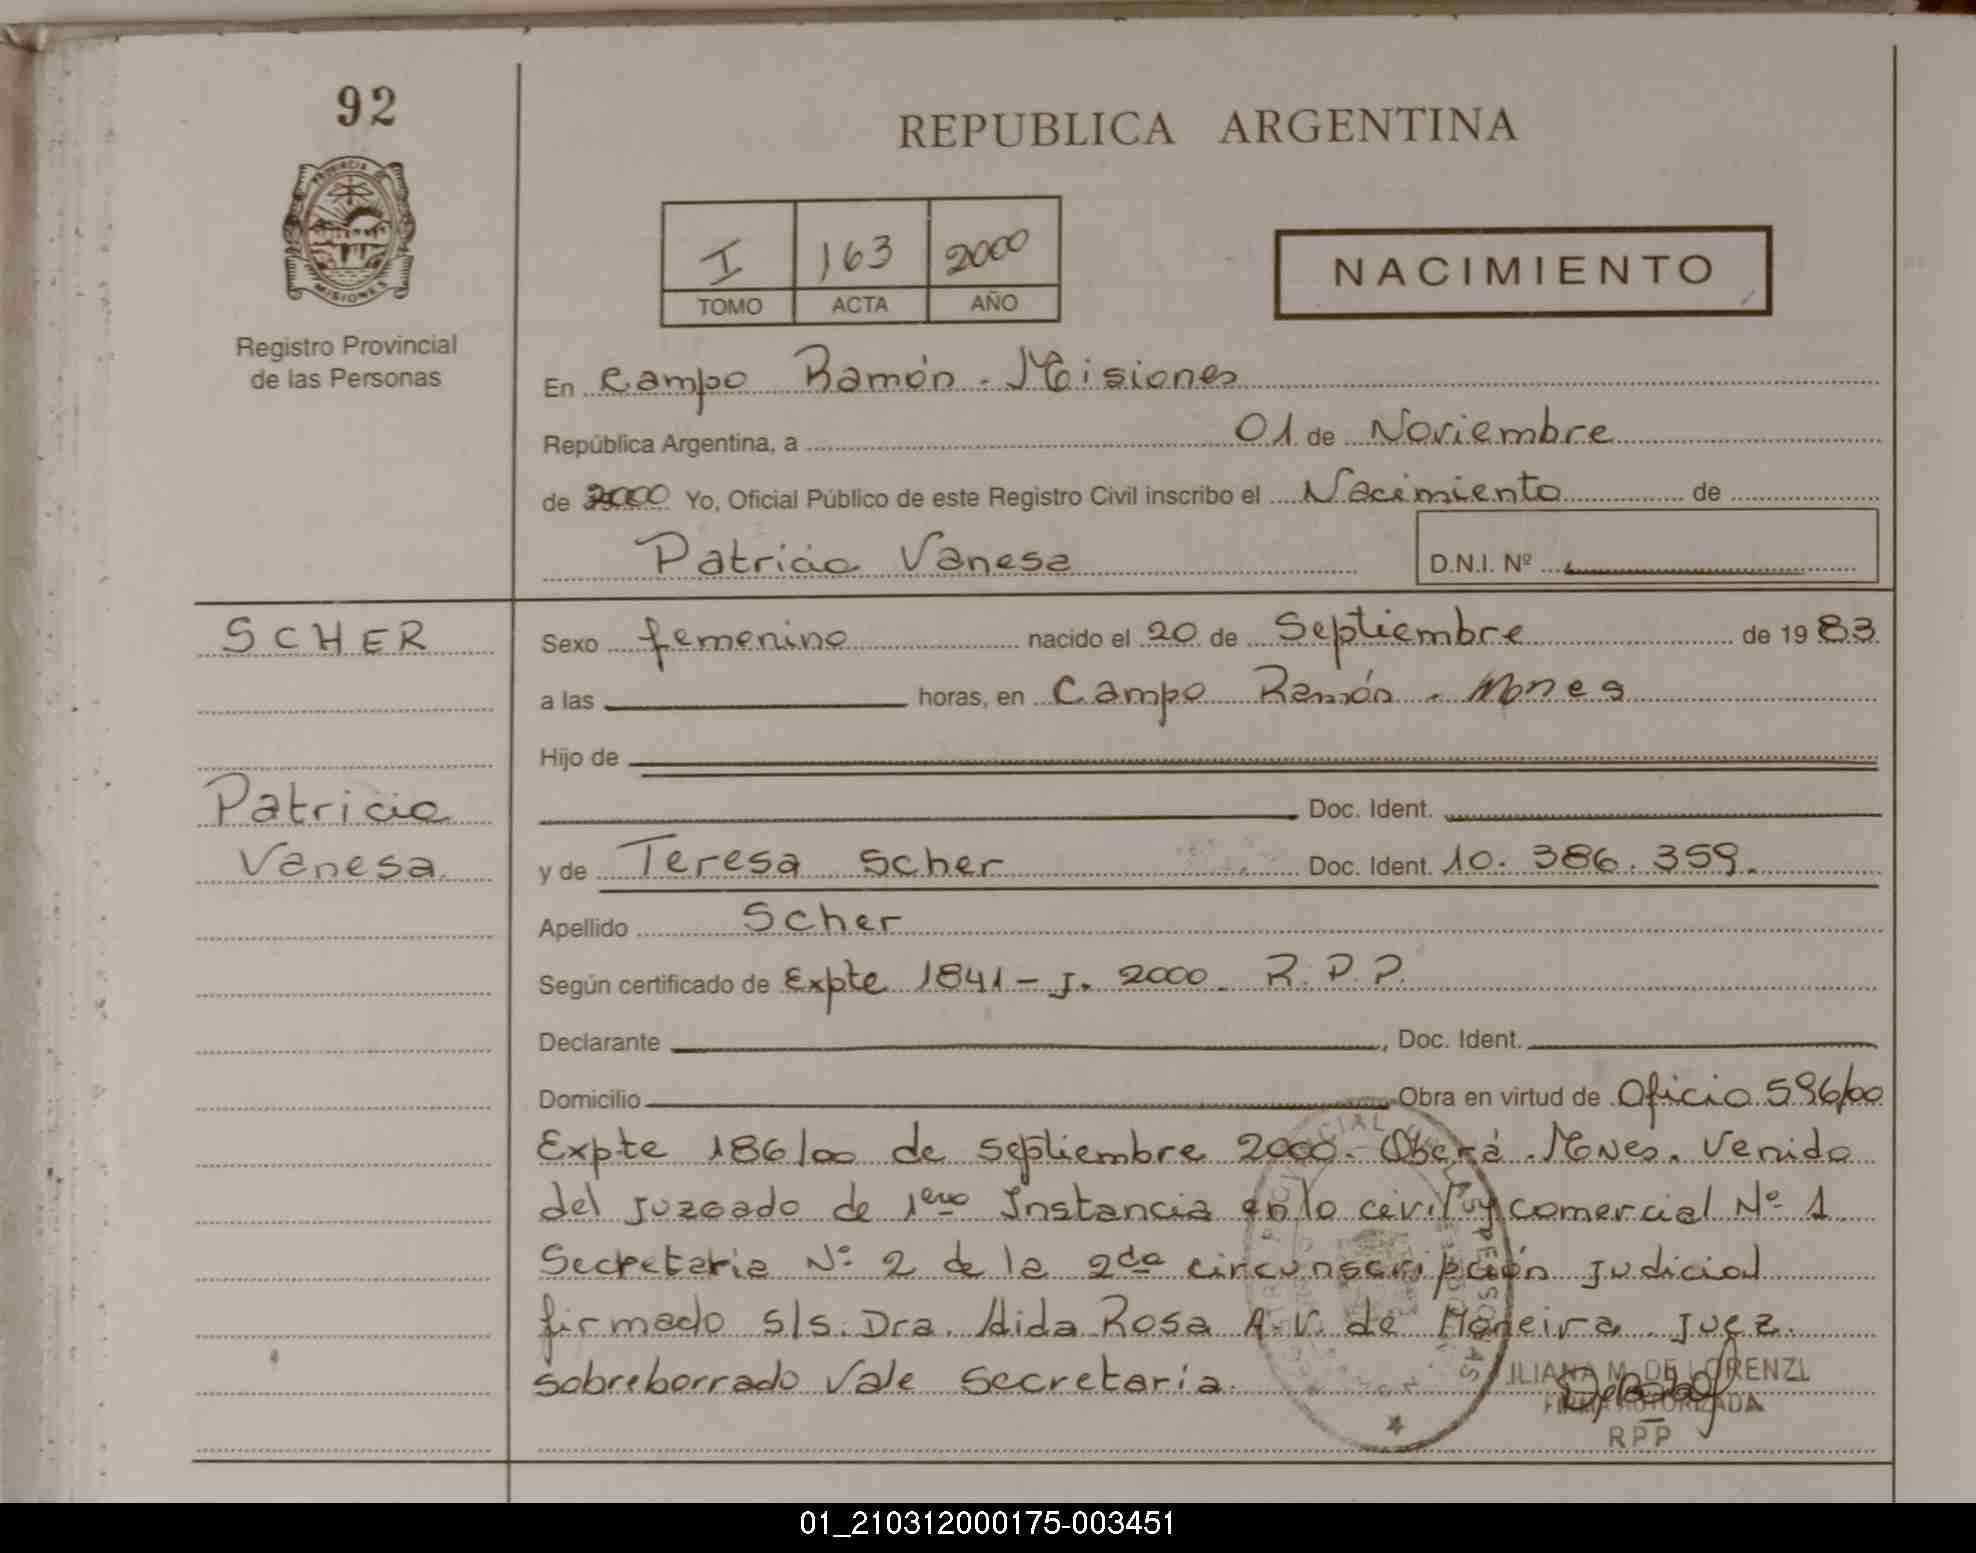 92
REPUBLICA ARGENTINA
PROVINCIA DE
MISIONES
I 163 2000
TOMO ACTA AÑO
NACIMIENTO
Registro Provincial
de las Personas
En Campo Ramón - Misiones
República Argentina, a 01 de Noviembre
de 2000 Yo, Oficial Público de este Registro Civil inscribo el Nacimiento de
Patricia Vanesa D.N.I. Nº
SCHER
Patricia
Vanesa.
Sexo femenino nacido el 20 de Septiembre de 1983
a las horas, en Campo Ramón - Mnes
Hijo de
Doc. Ident.
y de Teresa Scher Doc. Ident. 10.386.359.
Apellido Scher
Según certificado de Expte 1841-J. 2000. R.P.P.
Declarante , Doc. Ident.
Domicilio Obra en virtud de Oficio 596/00
Expte 186/00 de septiembre 2000.- Oberá. Mnes. Venido
del juzgado de 1era Instancia en lo civil y comercial Nº 1
Secretaria Nº 2 de la 2da circunscripción judicial
firmado s/s. Dra. Aida Rosa A.V. de Moreira. Juez.
sobreborrado Vale secretaria.
LILIANA M. DE LORENZI
FIRMA AUTORIZADA
RPP
01_210312000175-003451